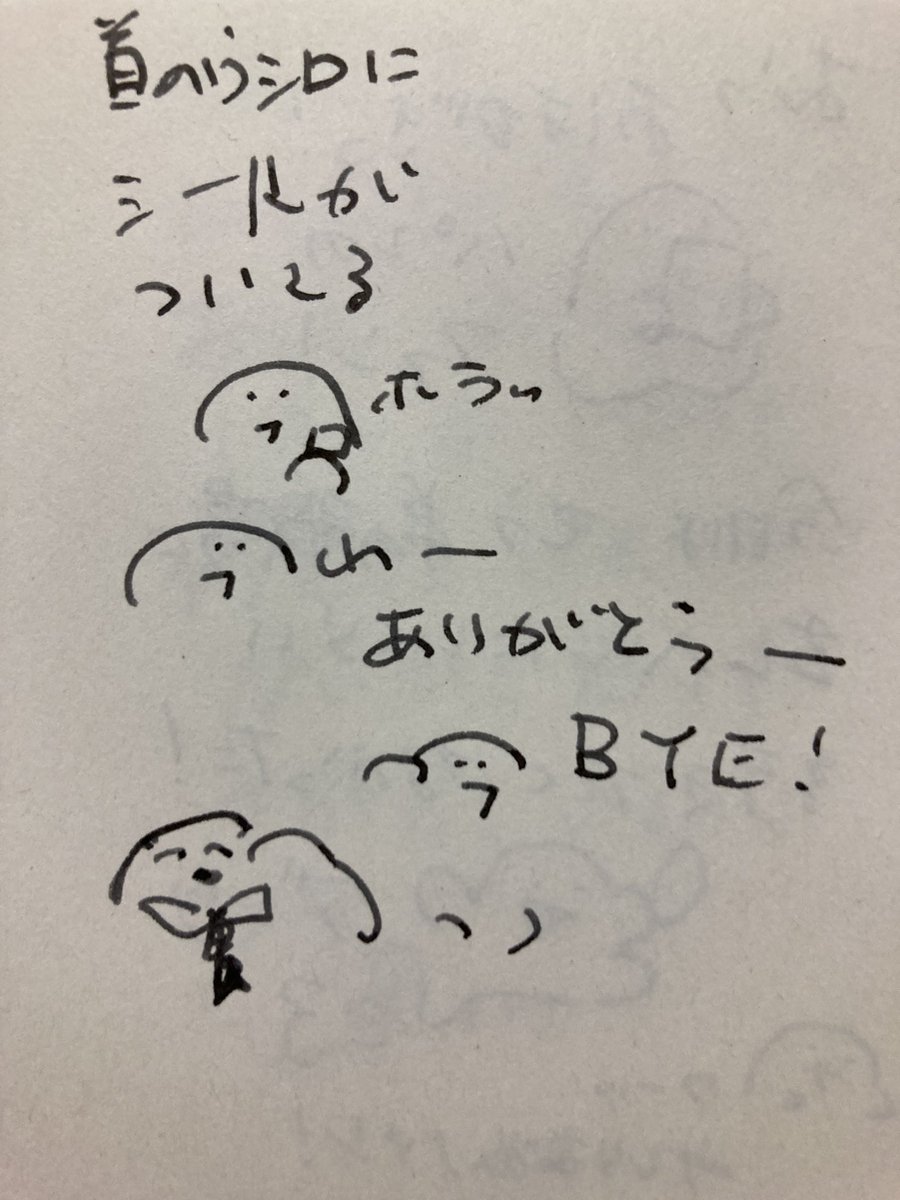 首のウシロに
シールが
ついてる
ホラッ
わー
ありがとうー
BYE!